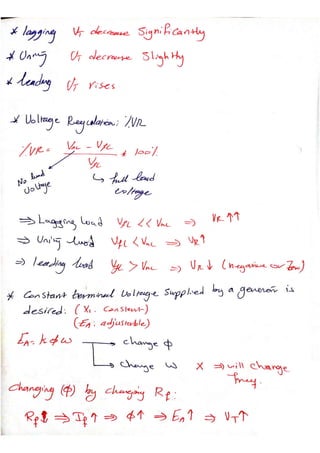 * lagging V_T decrease Significantly
* Unity V_T decrease Slightly
* leading V_T rises
* Voltage Regulation: %VR
%VR = (V_NL - V_FL) / V_FL * 100%
No load Voltage
↳ full load voltage
⇒ Lagging Load V_FL << V_NL ⇒ VR ↑↑
⇒ Unity load V_FL < V_NL ⇒ VR ↑
⇒ leading load V_FL > V_NL ⇒ VR ↓ (negative or Zero)
* Constant terminal voltage supplied by a generator is
desired: (X_s Constant)
(E_A: adjustable)
E_A = k ϕ ω → change ϕ
→ change ω X ⇒ will change freq.
Changing (ϕ) by changing R_F:
R_F ↓ ⇒ I_F ↑ ⇒ ϕ ↑ ⇒ E_A ↑ ⇒ V_T ↑